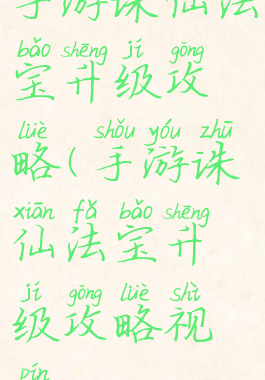 手游诛仙法
bǎo shēng jí gōng
宝升级攻
lüè shǒu yóu zhū
略(手游诛
xiān fǎ bǎo shēng
仙法宝升
jí gōng lüè shì
级攻略视
pín